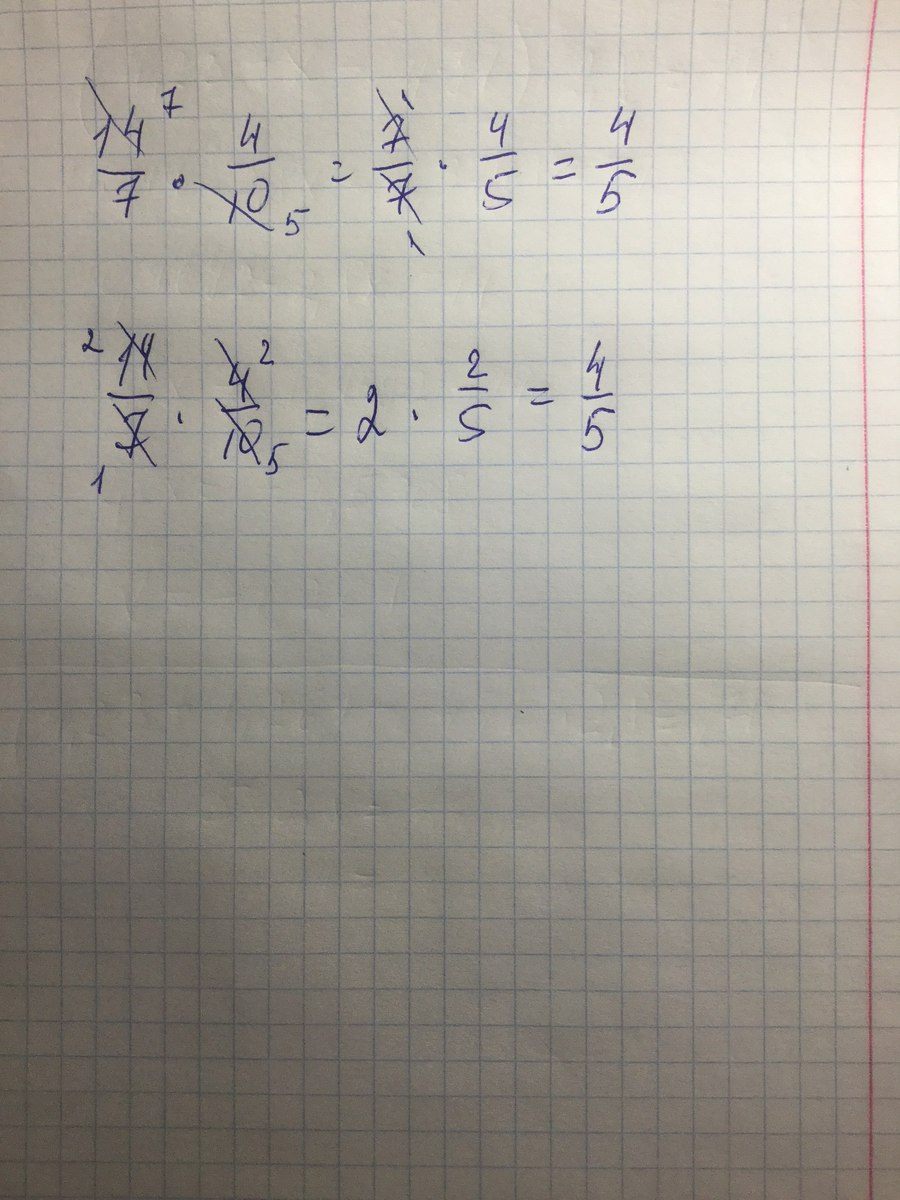 14/7 7 · 4/10 5 = 7/7 1 1 · 4/5 = 4/5
2 14/7 1 · 4/10 2 5 = 2 · 2/5 = 4/5